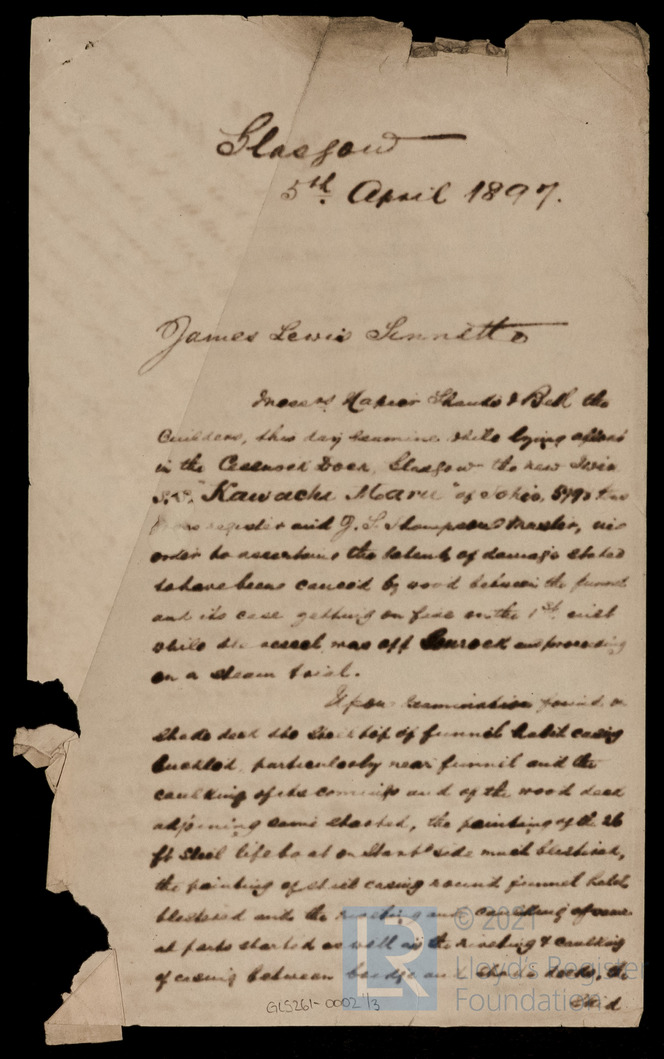 Glasgow
5th April 1897.
James Lewis Sinnett
Messrs Napier Shanks & Bell the
builders, this day examine while lying afloat
in the Cessnock Dock, Glasgow the new Twin
S.S. "Kawachi Maru" of Tokio, 5790 tons
gross register and J. S. Thompson Master, in
order to ascertain the extent of damage stated
to have been caused by wood between the funnel
and its case getting on fire on the 1st inst
while the vessel was off Gourock and proceeding
on a steam trial.
Upon examination found on
shade deck the steel top of funnel hatch casing
buckled, particularly near funnel and the
caulking of its comings and of the wood deck
adjoining same started, the painting of the 26
ft steel life boat on Starbd side much blistered,
the painting of steel casing round funnel hatch
blistered and the riveting and caulking of same
at parts started as well as the riveting & caulking
of casing between bridge and shade decks, the
GLS261-0002 1/3
LR
© 2021
Lloyd's Register
Foundation